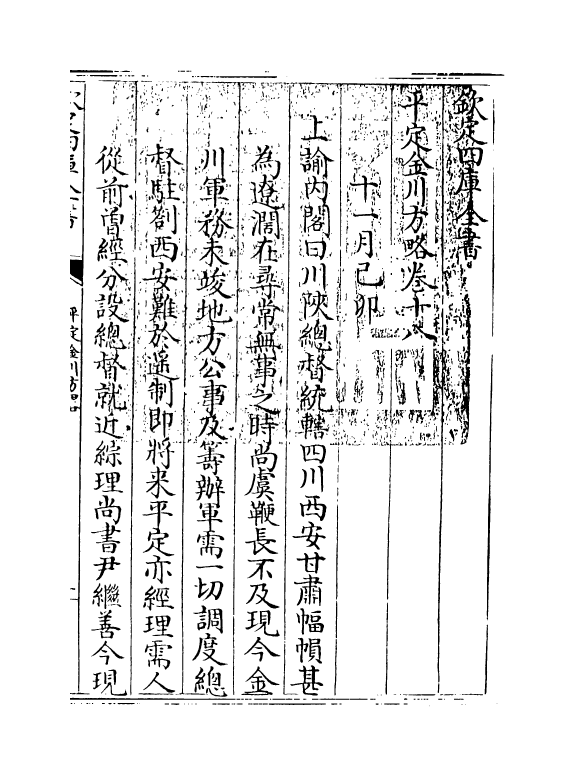 欽定四庫全書
平定金川方略卷十八
十一月己卯
上諭内閣曰川陝總督統轄四川西安甘肅幅幀甚
為遼濶在尋常無事之時尚虞鞭長不及現今金
川軍務未竣地方公事及籌辦軍需一切調度總
督駐劄西安難於遥制即將来平定亦經理需人
從前曽經分設總督就近綜理尚書尹繼善今現
欽定四庫全書
平定金川方略